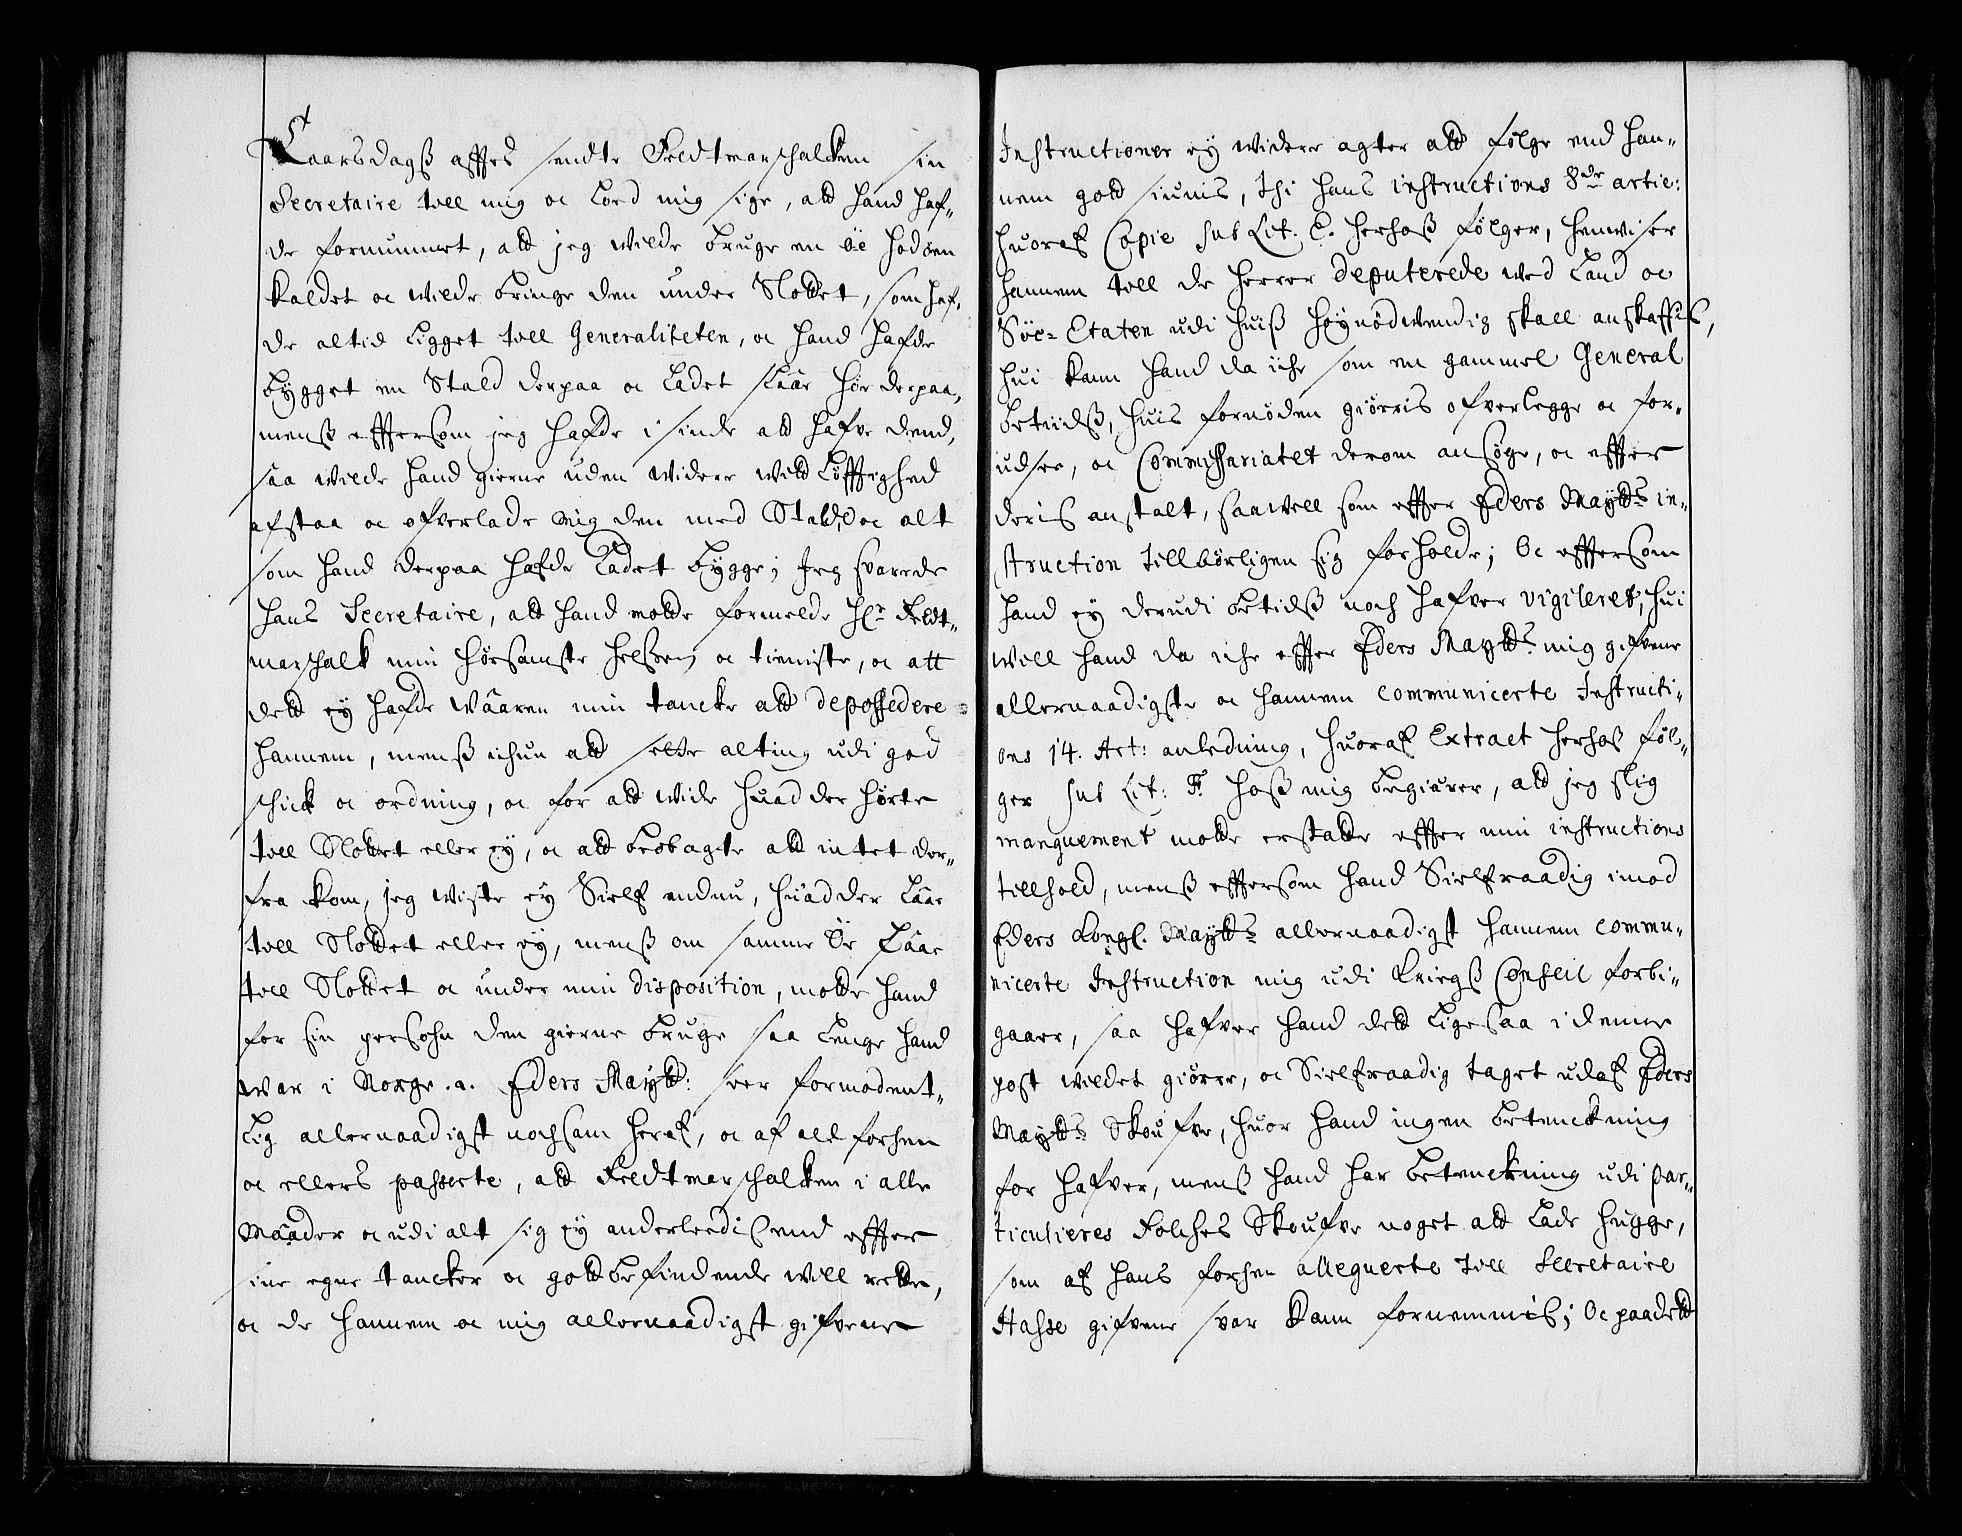 Laarsdagß afftes sendte Feldtmarschalcken sin
Secretaire till mig oc loed mig sige, att hand haf-
de fornummet, att jeg wilde bruge en Öe Hodøen
kaldet oc wilde bringe den under Slottet, som haf-
de altid ligget till Generaliteten, oc hand hafde
bygget en Stald derpaa oc ladet slaae Høe derpaa,
menß effersom jeg hafde i sinde att hafve dend,
saa wilde hand gierne uden widere witløfftighed
afstaa oc ofverlade mig den med Stald oc alt
som hand derpaa hafde ladet bygge; Jeg svarede
hans Secretaire, att hand motte formelde Hr Feldt-
marschalk min hørsamste helsen oc tieniste, oc att
dett ey hafde wäaren min tancke att depossedere
hannem, menß ichun att sette alting udi god
schick oc ordning, oc for att wide huad der hørte
till Slottet eller ey, oc att beobagte att intet der-
fra kom, jeg wiste ey Sielf endnu, huad der laae
till Slottet eller ey, menß om samme Öe laae
till Slottet oc under min disposition, motte hand
for sin persohn den gierne bruge saa lenge hand
war i Norge .a. Eders Maytt: seer formodent-
lig allernaadigst nochsam heraf, oc af alt forhen
oc ellers passerte, att Feldtmarschalcken i alle
Maader oc udi alt sig ey anderleedis end effter
sine egne tancker oc gottbefindende will rette,
oc de hannem oc mig allernaadigst gifvene
Instructioner ey widere agter att følge end han-
nem gott siunis, thi hans instructions 8de artic:
huoraf Copie sub Lit. E. herhoß følger, henwiser
hannem till de herrer deputerede wed Land oc
Söe-Etaten udi huiß høynødwendig skall anskaffis,
hui kann hand da iche som en gammel General
betiidß, huis fornøden giøris ofverlegge oc for-
udsee, oc Commissariatet derom ansøge, oc effter
deris anstalt, saawell som effter Eders Maytts in-
struction tillbørligen sig forholde; Oc effersom
hand ey derudi betidß noch hafver vigileret, hui
will hand da iche effter Eders Maytts mig gifvene
allernaadigste oc hannem communicerte Instructi-
ons 14. Art: anledning, huoraf Extract herhoß føl-
ger sub Lit: F. hoß mig begiærer, att jeg slig
manquement motte erstatte effter min instructions
tillhold, menß effersom hand Sielfraadig imod
Eders Kongl. Maytts allernaadigst hannem commu-
nicerte Instruction mig udi Kriegß Conseil forbi-
gaaer, saa hafver hand dett ligesaa i denne
post wildet giøre, oc Sielfraadig taget udaf Eders
Maytts Skoufve, huor hand ingen betenckning
for hafver, menß hand har betenckning udi par-
ticulieres Folches Skoufve noget att lade hugge,
som af hans forhen alleguerte till Secretaire
Hasse gifvene svar kann fornemmis; Oc paadett